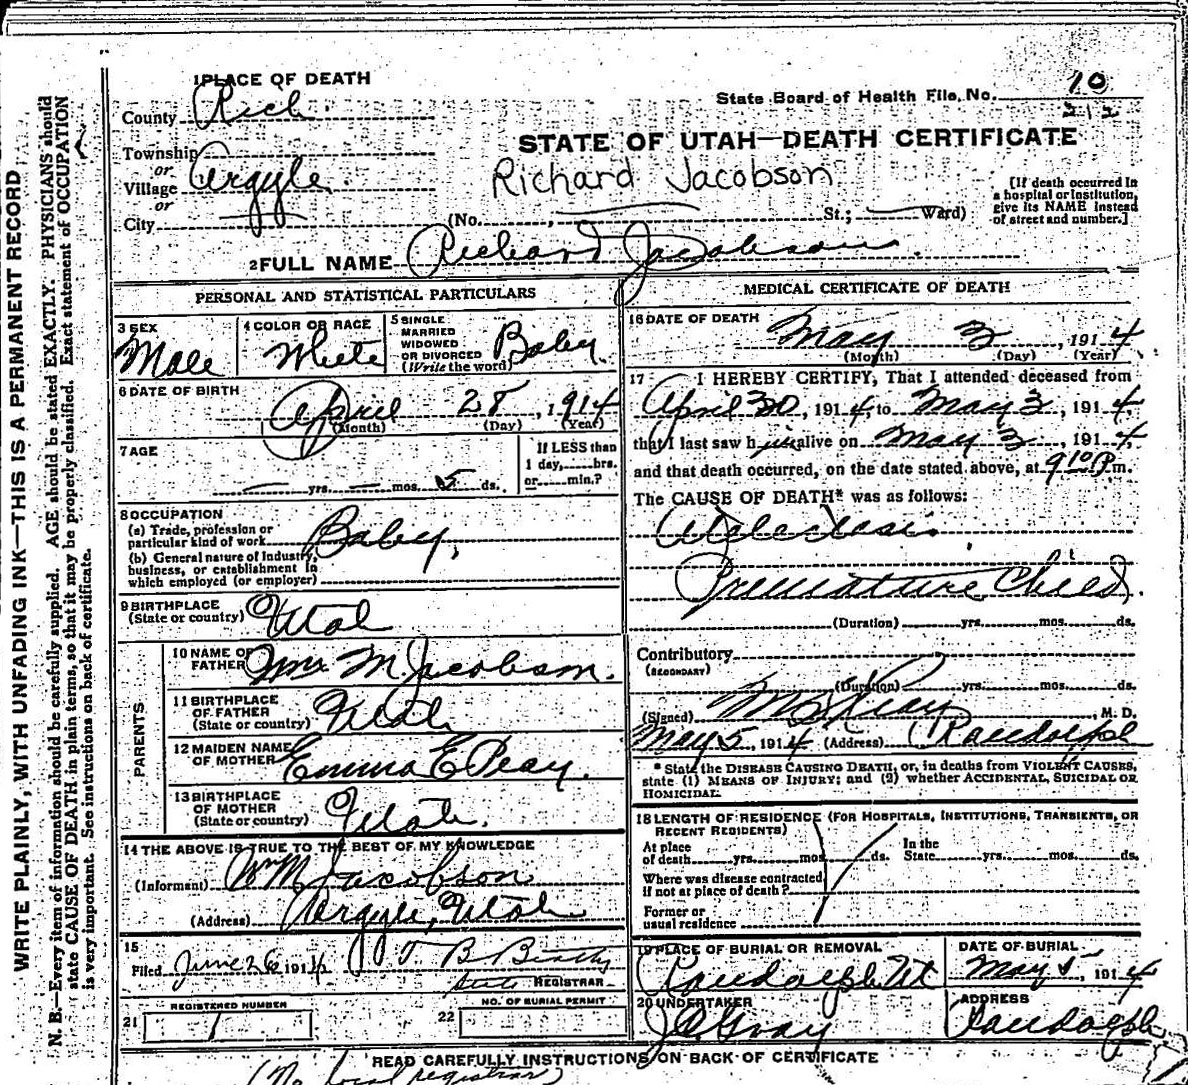 1 PLACE OF DEATH
County Rich
State Board of Health File No. 10
212
STATE OF UTAH—DEATH CERTIFICATE
Township
or
Village Argyle
or
City
Richard Jacobson
(No. , St.; Ward)
[If death occurred in a hospital or institution, give its NAME instead of street and number.]
2 FULL NAME Richard Jacobson
PERSONAL AND STATISTICAL PARTICULARS
3 SEX Male
4 COLOR OR RACE White
5 SINGLE MARRIED WIDOWED OR DIVORCED (Write the word) Baby.
6 DATE OF BIRTH
April 28, 1914
(Month) (Day) (Year)
7 AGE
yrs. mos. 5 ds.
If LESS than 1 day, hrs. or min.?
8 OCCUPATION
(a) Trade, profession or particular kind of work Baby,
(b) General nature of Industry, business, or establishment in which employed (or employer)
9 BIRTHPLACE (State or country) Utah
PARENTS
10 NAME OF FATHER Wm M. Jacobson.
11 BIRTHPLACE OF FATHER (State or country) Utah
12 MAIDEN NAME OF MOTHER Emma E Peay.
13 BIRTHPLACE OF MOTHER (State or country) Utah.
14 THE ABOVE IS TRUE TO THE BEST OF MY KNOWLEDGE
(Informant) Wm M Jacobson
(Address) Argyle, Utah
15
Filed June 26 1914
State REGISTRAR
REGISTERED NUMBER
21 1
NO. OF BURIAL PERMIT
22
MEDICAL CERTIFICATE OF DEATH
16 DATE OF DEATH
May 3, 1914
(Month) (Day) (Year)
17 I HEREBY CERTIFY, That I attended deceased from
April 30, 1914, to May 3, 1914,
that I last saw him alive on May 3, 1914,
and that death occurred, on the date stated above, at 9 10 P m.
The CAUSE OF DEATH* was as follows:
Atelectasis.
Premature Child.
(Duration) yrs. mos. ds.
Contributory
(SECONDARY)
(Duration) yrs. mos. ds.
(Signed) , M. D.
May 5, 1914 (Address) Randolph
* State the DISEASE CAUSING DEATH, or, in deaths from VIOLENT CAUSES, state (1) MEANS OF INJURY; and (2) whether ACCIDENTAL, SUICIDAL OR HOMICIDAL.
18 LENGTH OF RESIDENCE (FOR HOSPITALS, INSTITUTIONS, TRANSIENTS, OR RECENT RESIDENTS)
At place of death yrs. mos. ds. In the State yrs. mos. ds.
Where was disease contracted if not at place of death?
Former or usual residence
19 PLACE OF BURIAL OR REMOVAL
Randolph Ut
DATE OF BURIAL
May 5, 1914
20 UNDERTAKER
Gray
ADDRESS
Randolph
READ CAREFULLY INSTRUCTIONS ON BACK OF CERTIFICATE
(No local registrar)
WRITE PLAINLY, WITH UNFADING INK—THIS IS A PERMANENT RECORD
N. B.—Every item of information should be carefully supplied. AGE should be stated EXACTLY. PHYSICIANS should
state CAUSE OF DEATH in plain terms, so that it may be properly classified. Exact statement of OCCUPATION
is very important. See instructions on back of certificate.